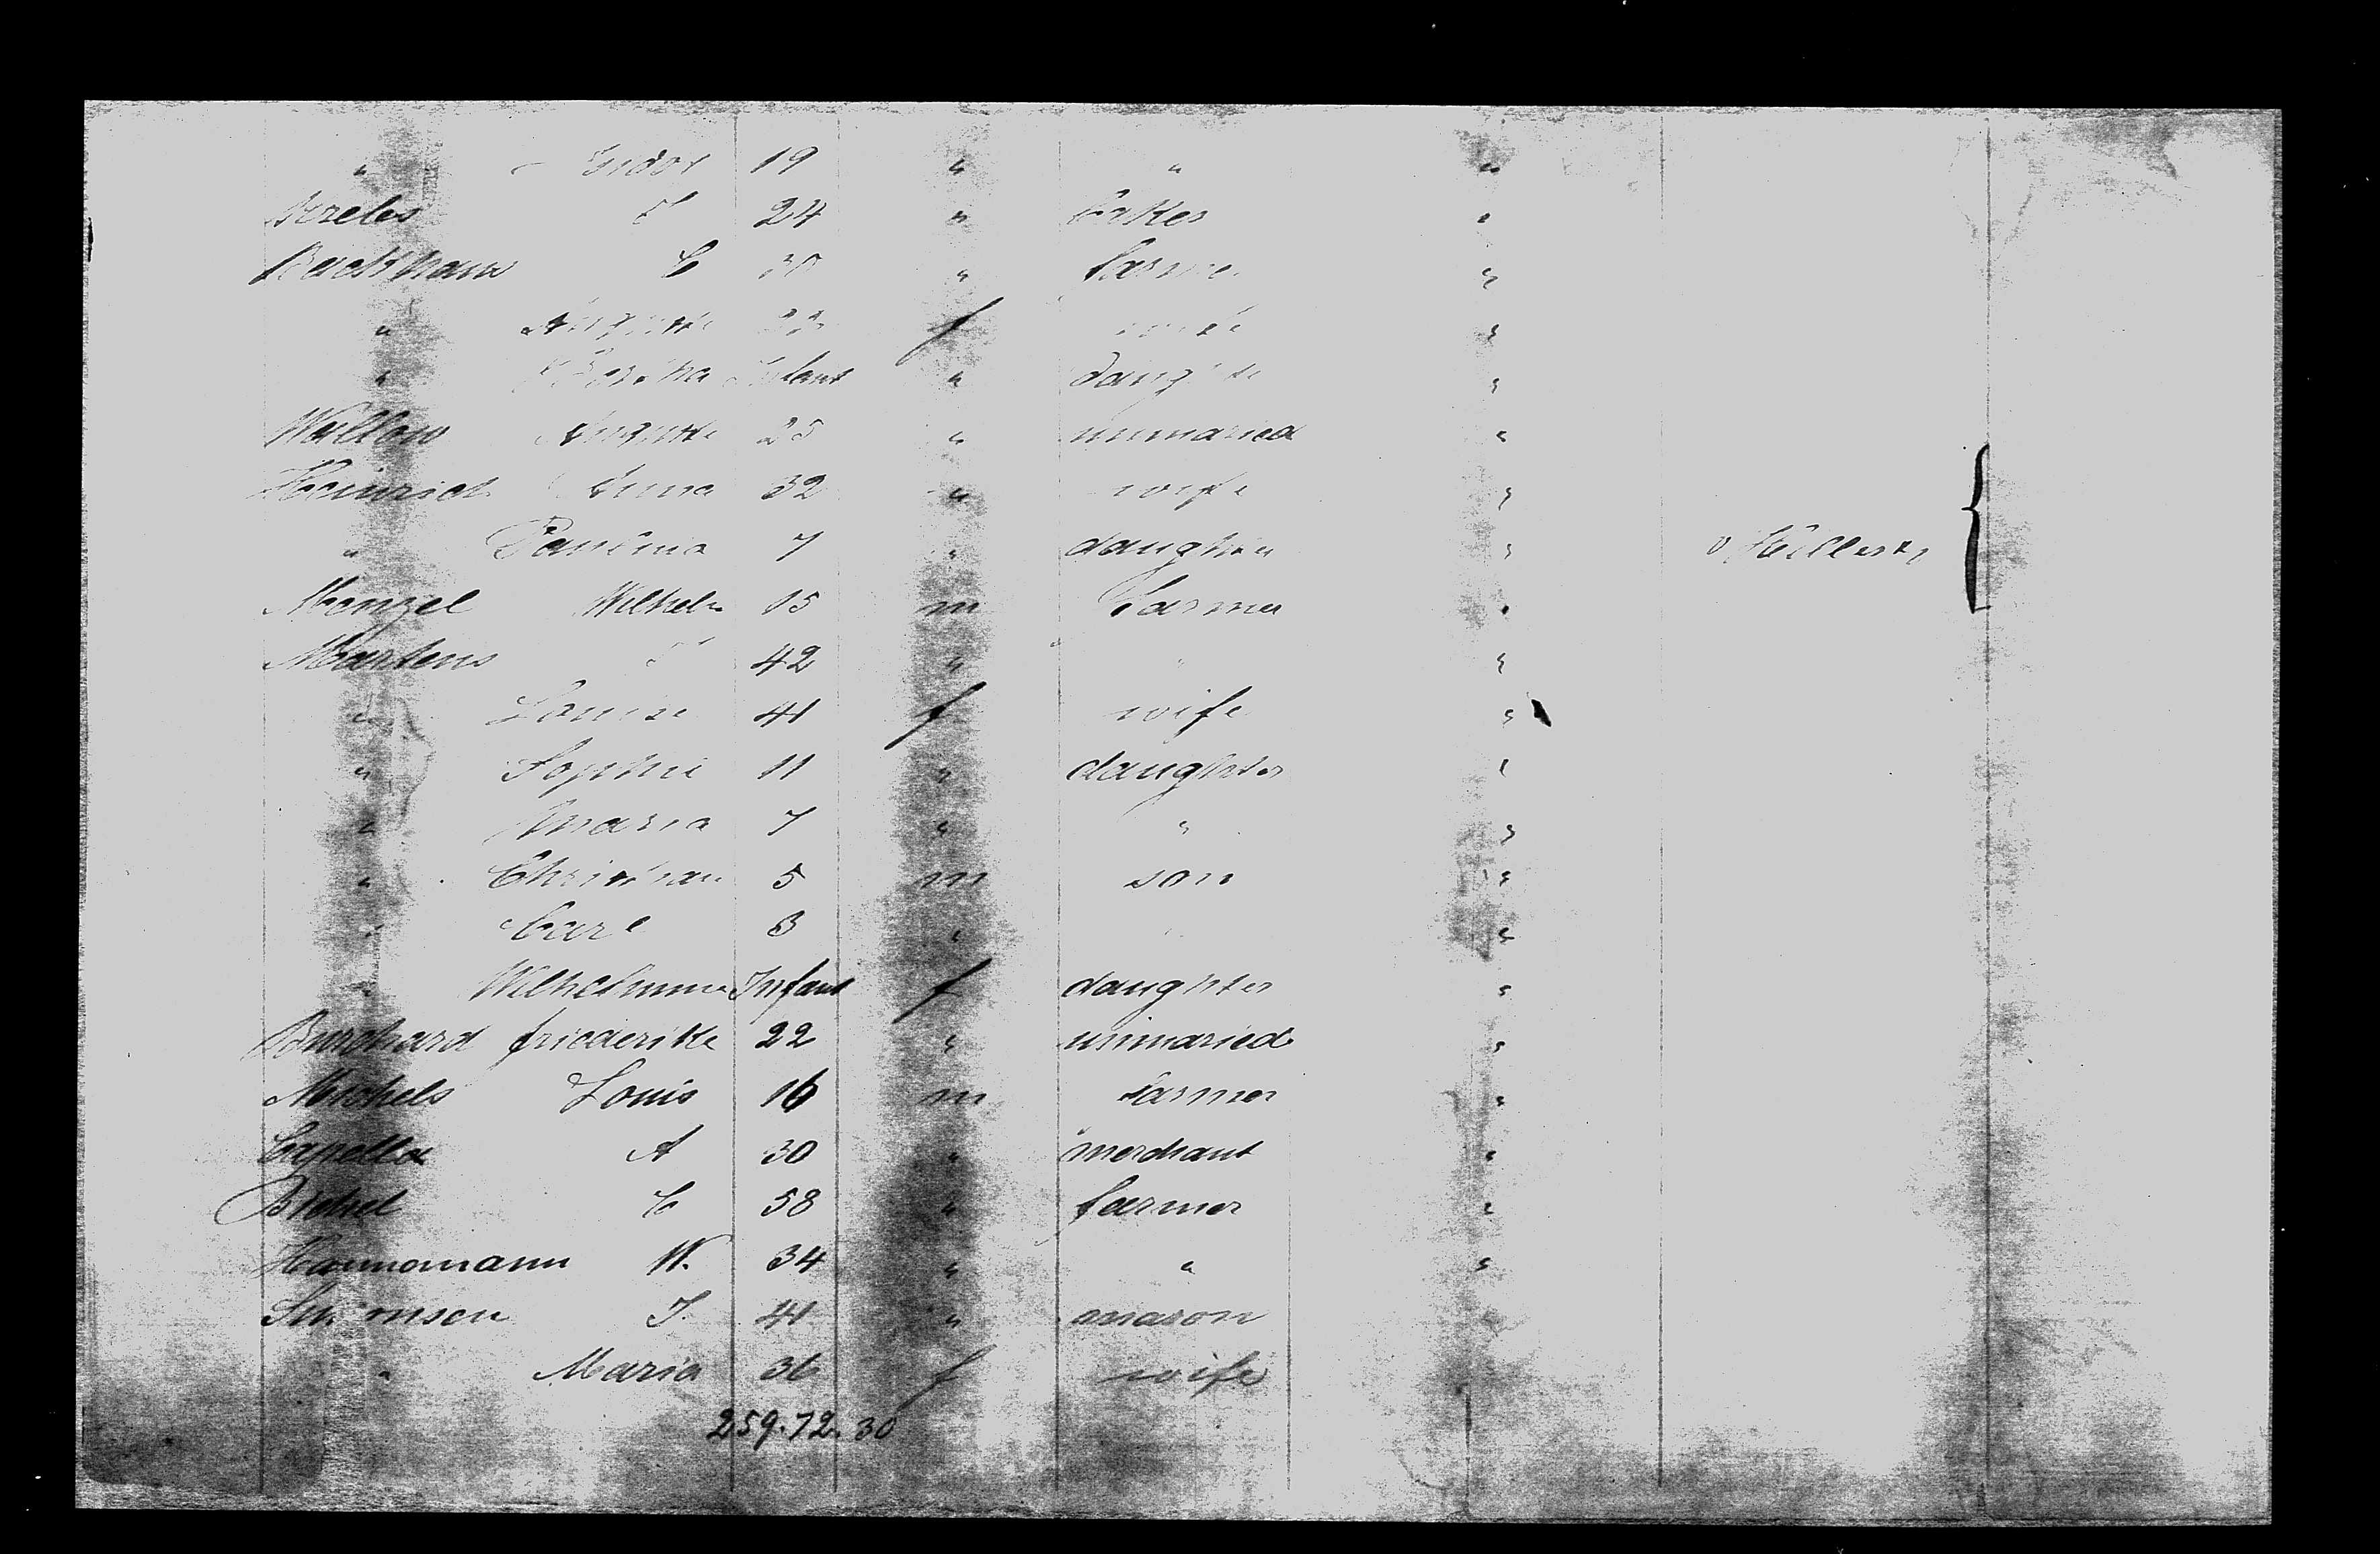 " Isidor 19 " " "
24 " baker "
Backhaus C 30 " farmer "
" Auguste 22 f wife "
" Bertha Infant " daughter "
Wullow Auguste 25 " unmaried "
Heinrich Anna 32 " wife "
" Paulina 7 " daughter "
Menzel Wilhelm 15 m farmer "
Martens 42 " " "
" Louise 41 f wife "
" Sophie 11 " daughter "
" Maria 7 " " "
" Christian 5 m son "
" Carl 3 " " "
" Wilhelmine Infant f daughter "
Burchard friederike 22 " unmaried "
Michels Louis 16 m farmer "
Capella A 30 " merchant "
Bichel C 58 " farmer "
Hannomann W. 34 " " "
J. 41 " mason
" Maria 36 f wife
259.72.30